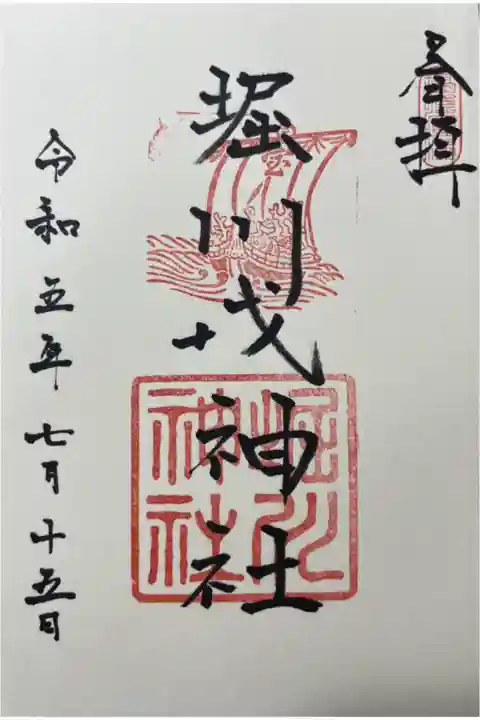 奉拝
堀川戎神社
令和五年七月十五日
宝
堀川
神社